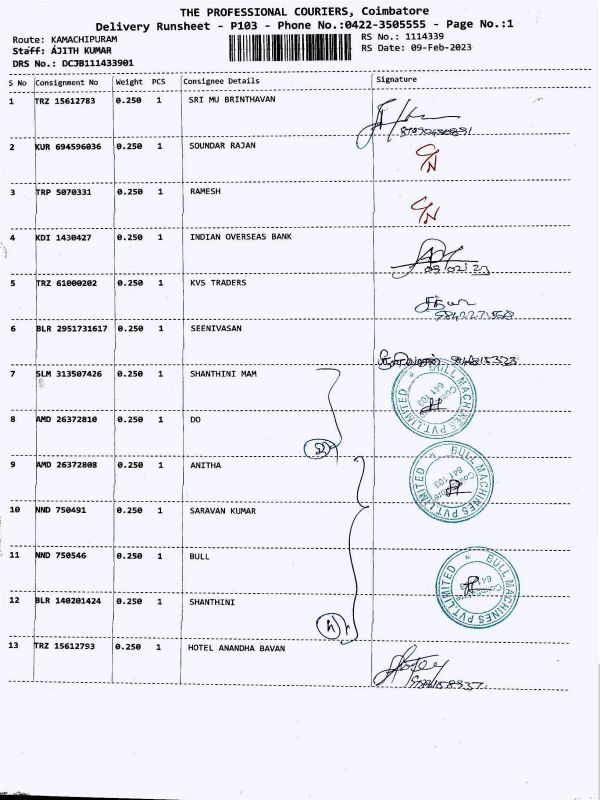 THE PROFESSIONAL COURIERS, Coimbatore
Delivery Runsheet - P103 - Phone No.:0422-3505555 - Page No.:1
Route: KAMACHIPURAM
Staff: AJITH KUMAR
DRS No.: DCJB111433901
RS No.: 1114339
RS Date: 09-Feb-2023
S No Consignment No Weight PCS Consignee Details Signature
1 TRZ 15612783 0.250 1 SRI MU BRINTHAVAN
2 KUR 694596036 0.250 1 SOUNDAR RAJAN C/N
3 TRP 5070331 0.250 1 RAMESH C/N
4 KDI 1430427 0.250 1 INDIAN OVERSEAS BANK
09/02/23
5 TRZ 61000202 0.250 1 KVS TRADERS
6 BLR 2951731617 0.250 1 SEENIVASAN
7 SLM 313507426 0.250 1 SHANTHINI MAM
BULL MACHINES PVT. LIMITED
Coimbatore
641 103
8 AMD 26372810 0.250 1 DO
9 AMD 26372808 0.250 1 ANITHA
BULL MACHINES PVT. LIMITED
Coimbatore
641 103
10 NND 750491 0.250 1 SARAVAN KUMAR
11 NND 750546 0.250 1 BULL
BULL MACHINES PVT. LIMITED
Coimbatore
641 103
12 BLR 140201424 0.250 1 SHANTHINI
13 TRZ 15612793 0.250 1 HOTEL ANANDHA BAVAN